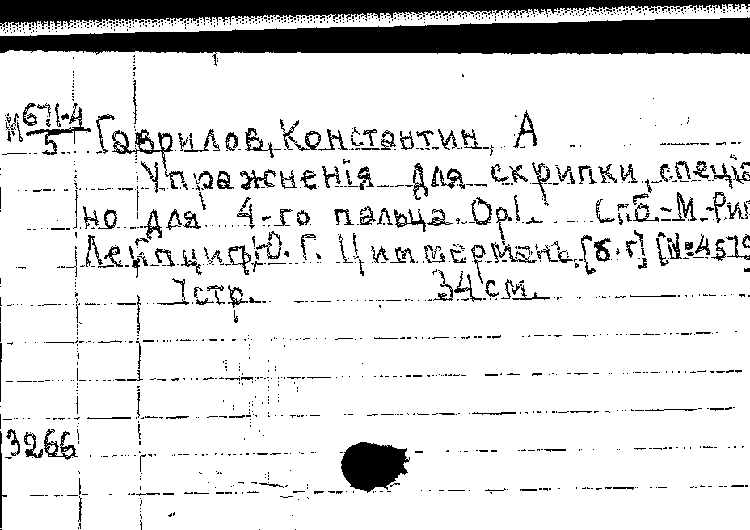 М 671-4
5
Гаврилов, Константин, А
Упражненія для скрипки, специа
но для 4-го пальца. Op1. Спб.-М.-Риг
Лейпциг, Ю. Г. Циммерманъ, [б.г] [№4579
7стр. 34 см.
3266